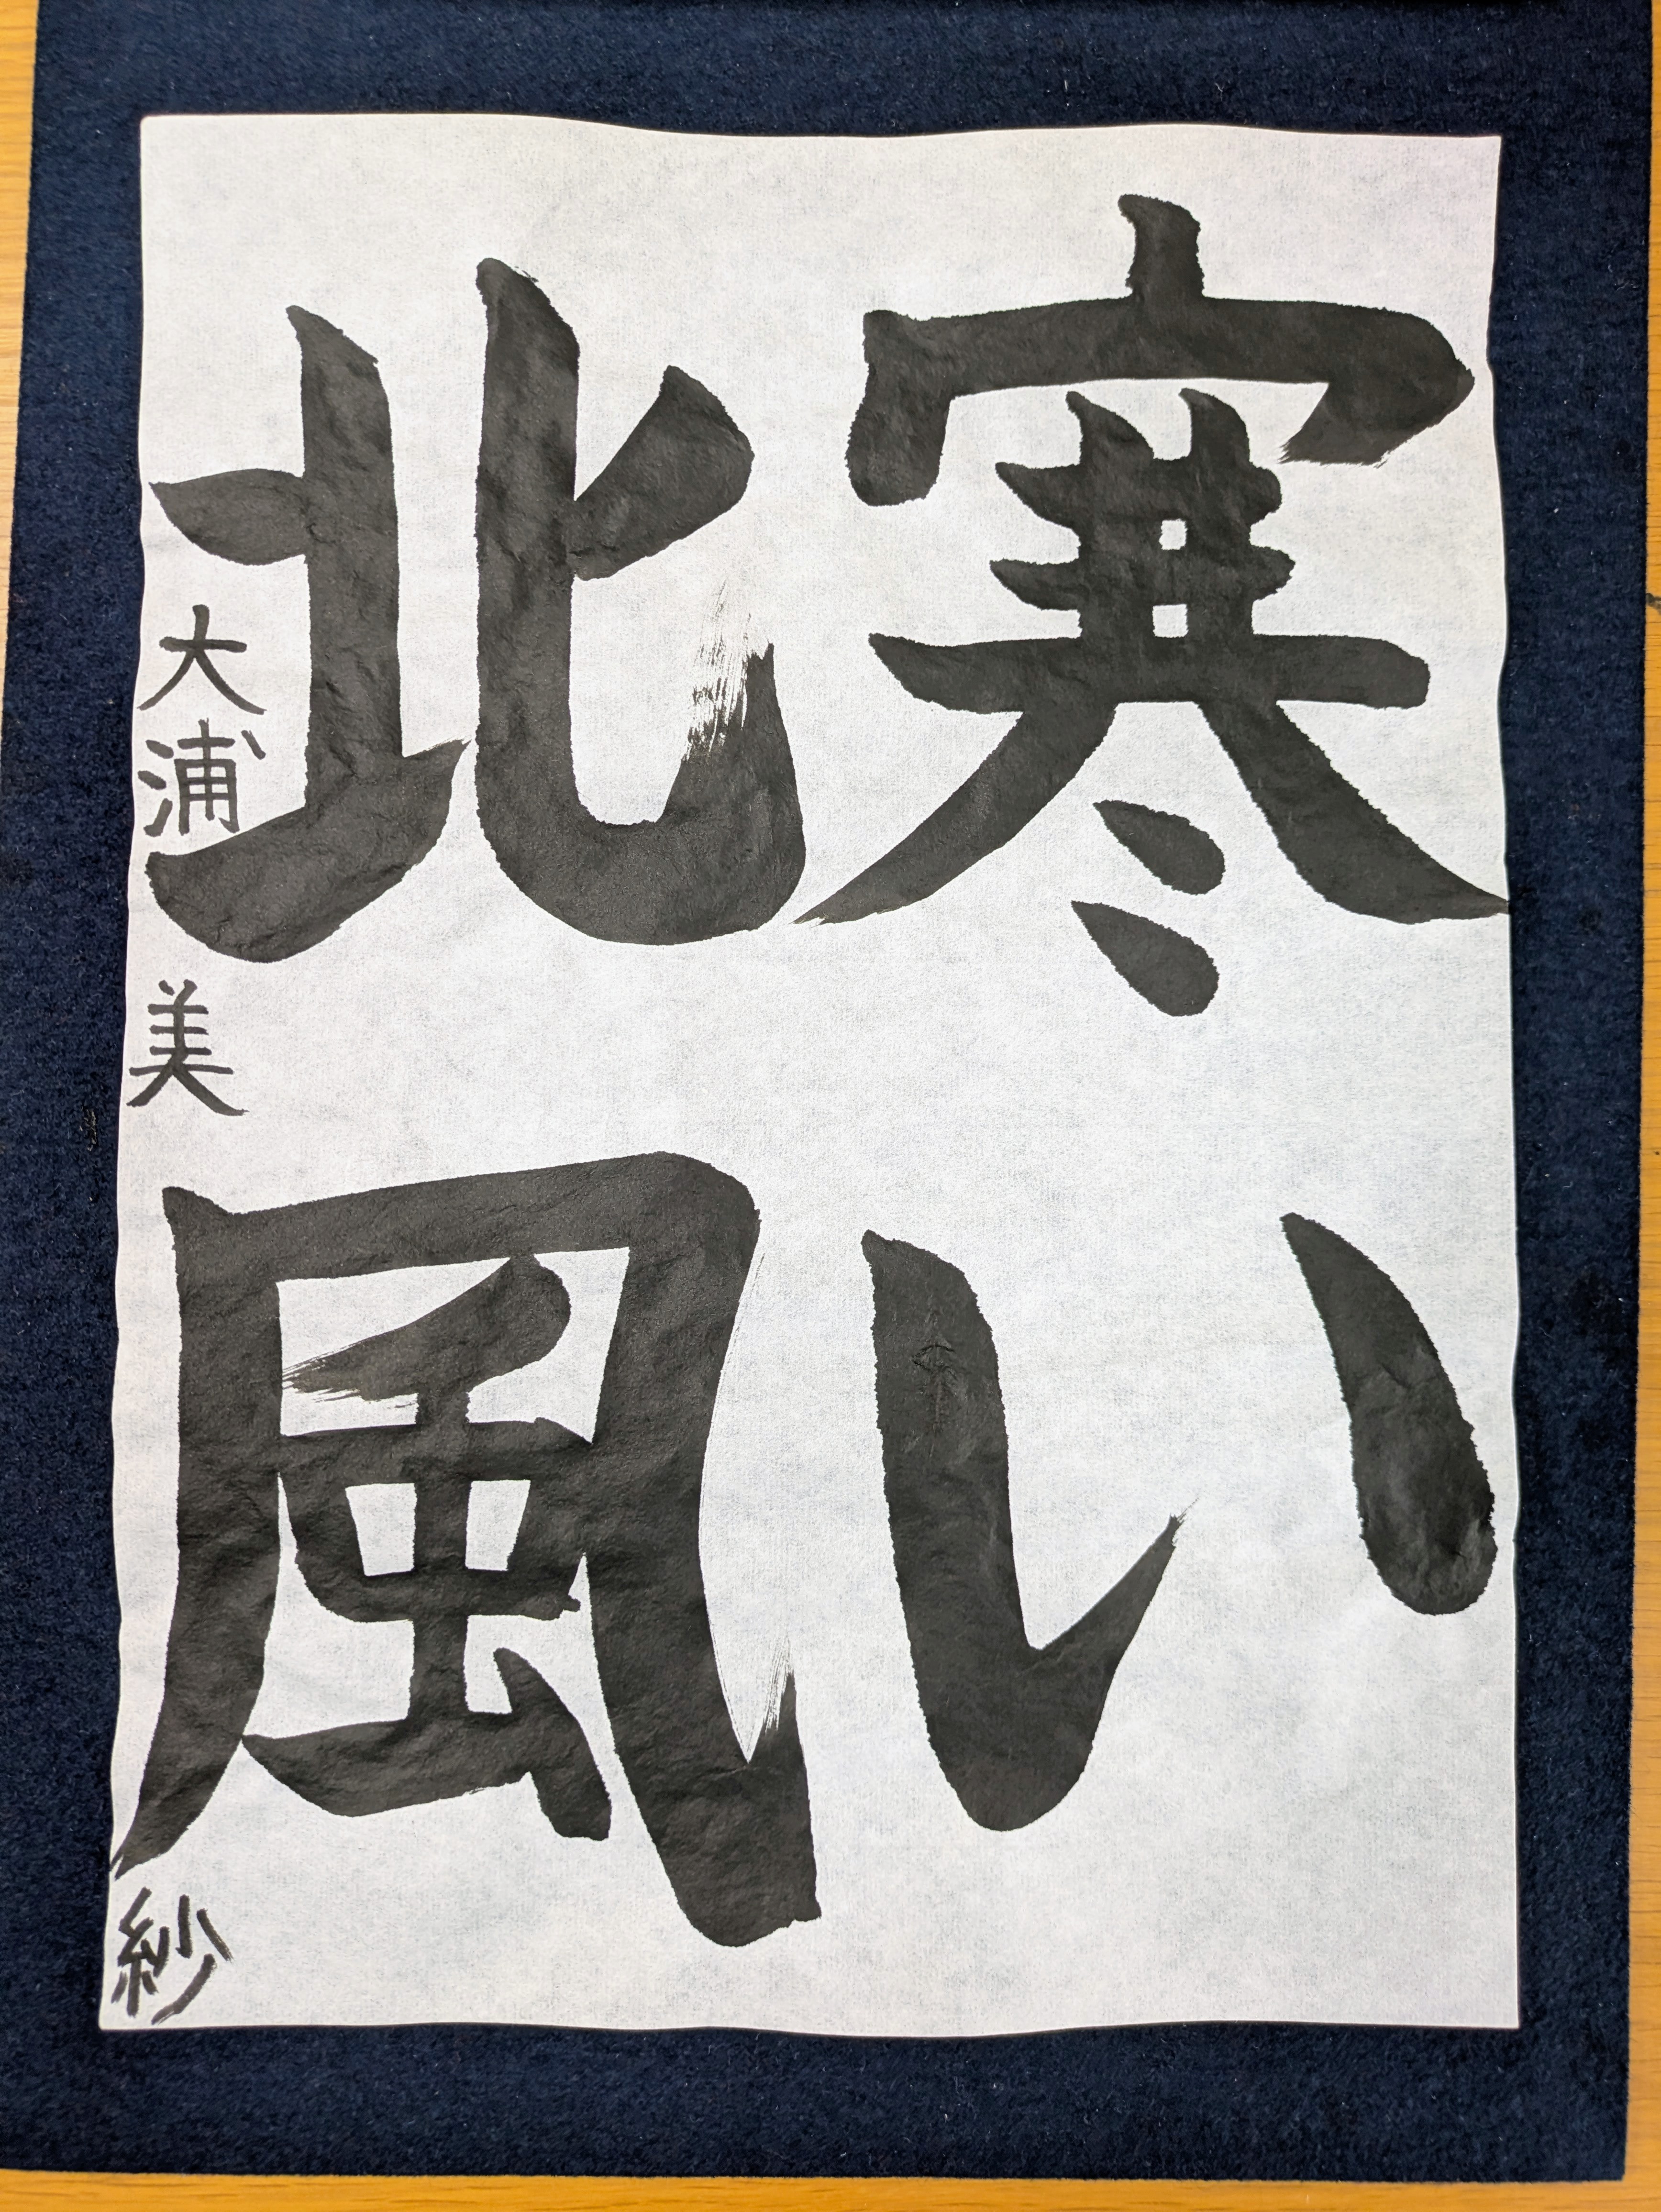 寒い
北風
大浦美紗